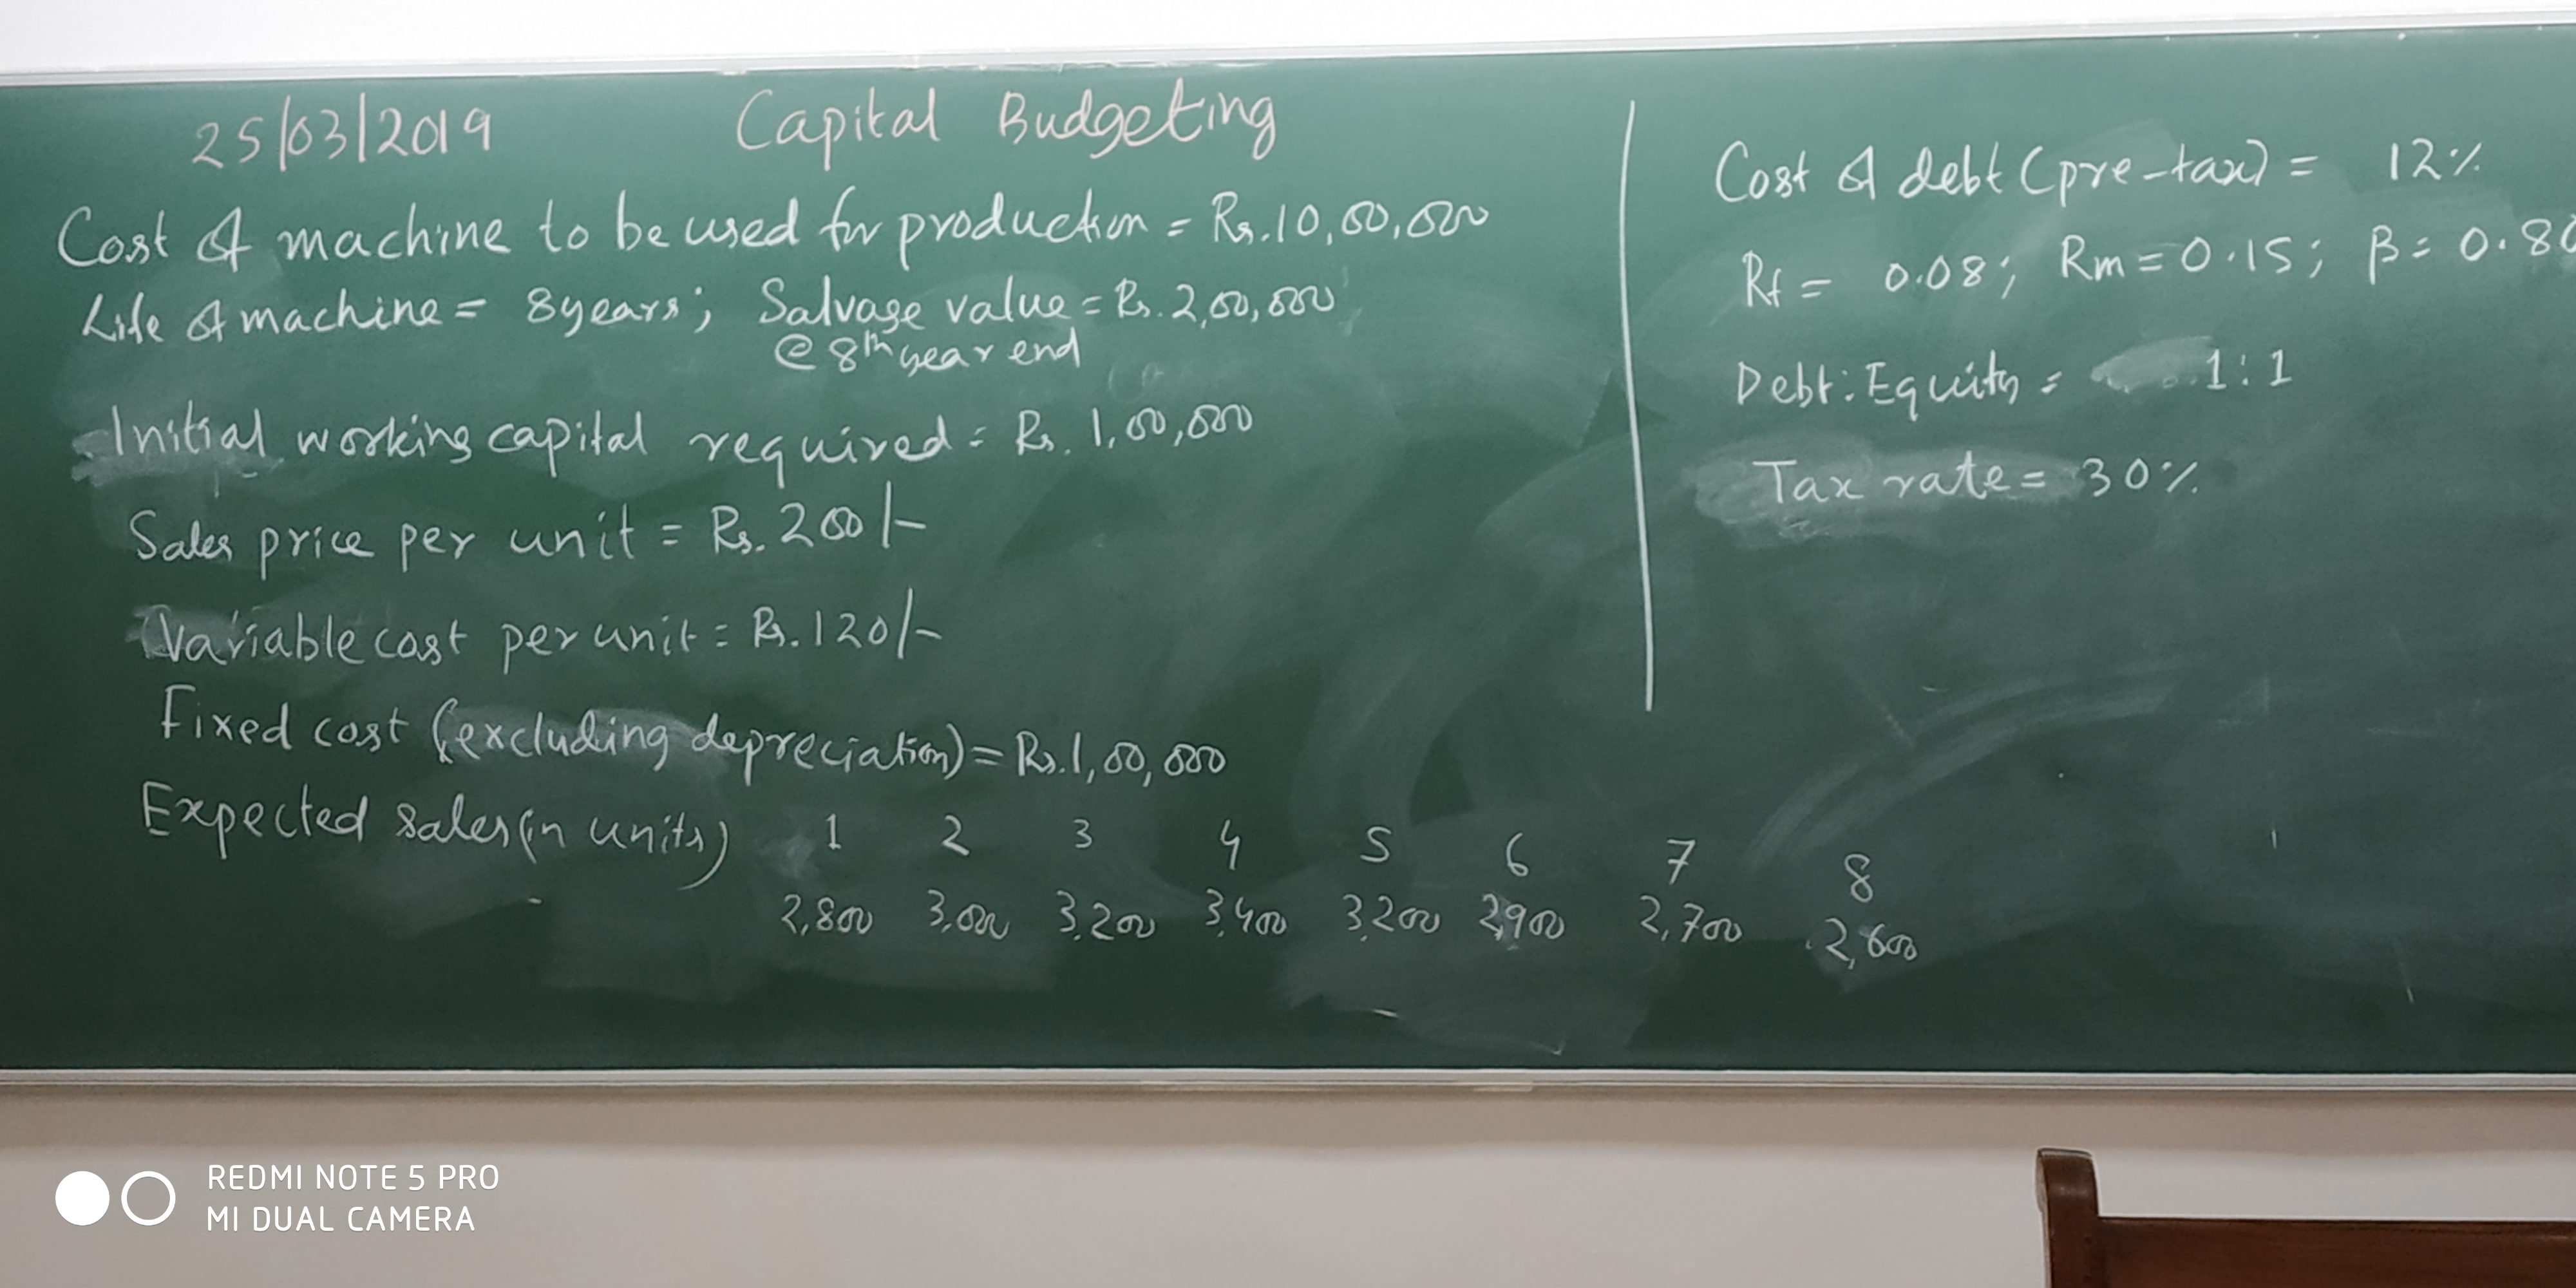 25/03/2019 Capital Budgeting
Cost of machine to be used for production = Rs.10,00,000
Life of machine = 8years; Salvage value = Rs. 2,00,000
@ 8th year end
Initial working capital required = Rs. 1,00,000
Sales price per unit = Rs. 200/-
Variable cost per unit = Rs. 120/-
Fixed cost (excluding depreciation) = Rs.1,00,000
Expected sales (in units) 1 2 3 4 5 6 7 8
2,800 3,000 3,200 3,400 3,200 2,900 2,700 2,600
Cost of debt (pre-tax) = 12%
Rf = 0.08; Rm = 0.15; β = 0.80
Debt:Equity = 1:1
Tax rate = 30%
REDMI NOTE 5 PRO
MI DUAL CAMERA